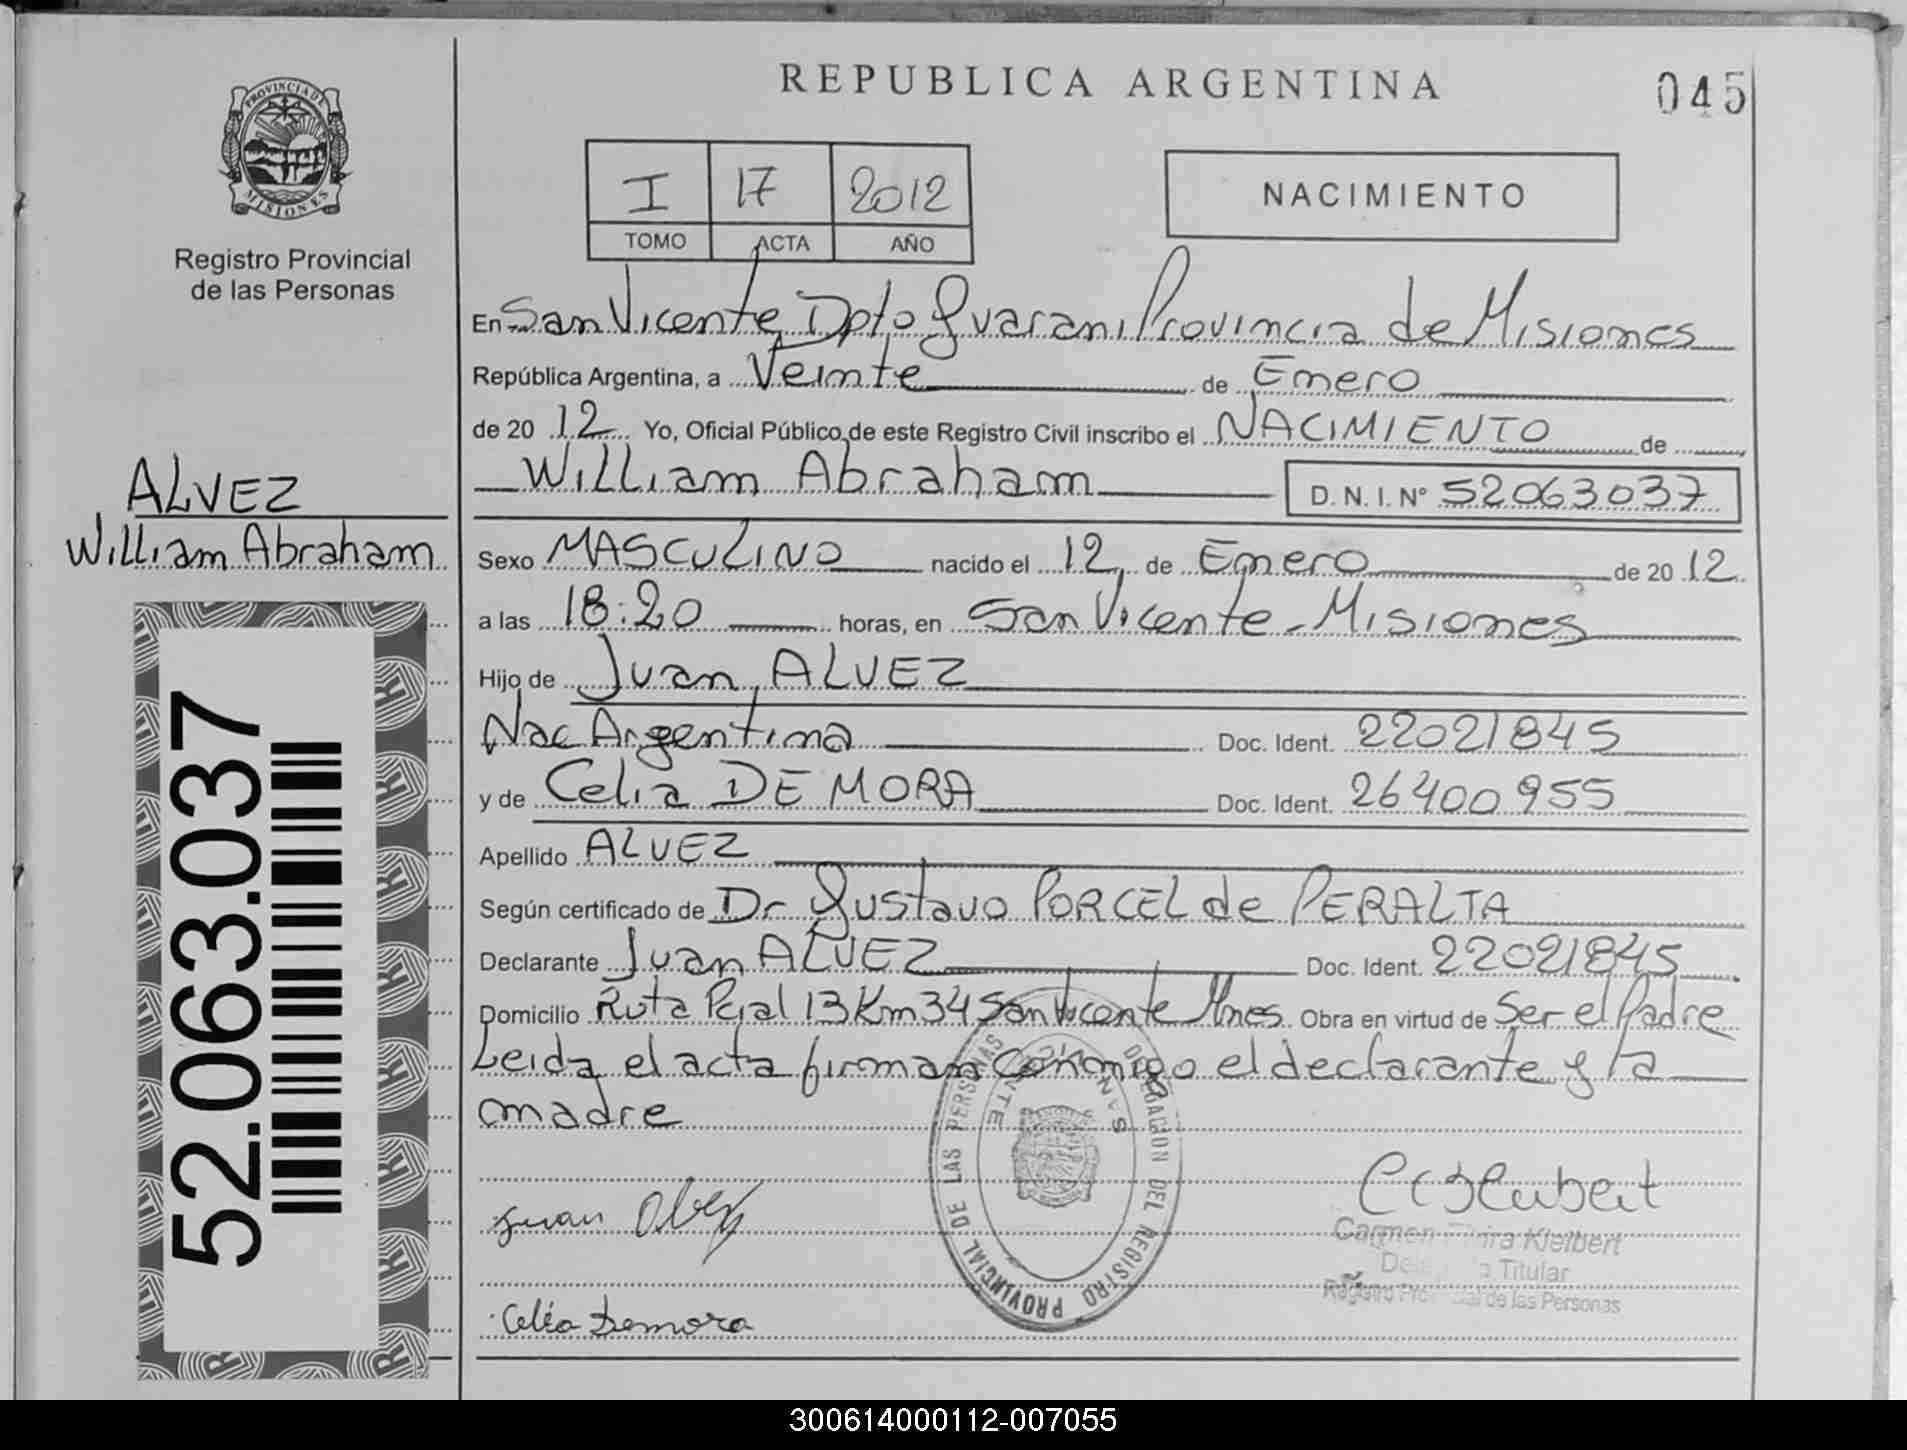 REPUBLICA ARGENTINA
045
PROVINCIA DE
MISIONES
Registro Provincial
de las Personas
I 17 2012
TOMO ACTA AÑO
NACIMIENTO
En San Vicente Dpto Guarani Provincia de Misiones
República Argentina, a Veinte de Enero
de 20 12 Yo, Oficial Público de este Registro Civil inscribo el NACIMIENTO de
William Abraham D.N.I. Nº 52063037
ALVEZ
William Abraham
Sexo MASCULINO nacido el 12 de Enero de 20 12
a las 18:20 horas, en San Vicente - Misiones
Hijo de Juan ALVEZ
Nac Argentina Doc. Ident. 22021845
y de Celia DE MORA Doc. Ident. 26400955
Apellido ALVEZ
Según certificado de Dr Gustavo PORCEL de PERALTA
Declarante Juan ALVEZ Doc. Ident. 22021845
Domicilio Ruta Pcial 13 Km 34 San Vicente Mnes Obra en virtud de Ser el Padre
Leida el acta firman conmigo el declarante y la
madre
52.063.037
DELEGACION DEL REGISTRO PROVINCIAL DE LAS PERSONAS
SAN VICENTE
Juan Alvez
Celia Demora
Carmen Kleibert
Titular
Registro Provincial de las Personas
300614000112-007055